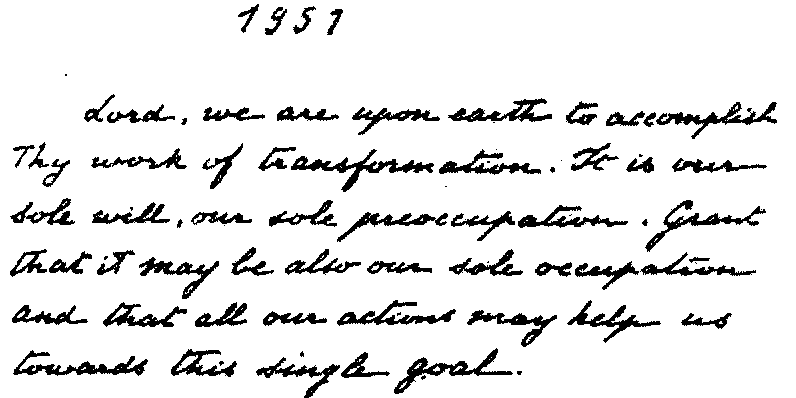 1951
Lord, we are upon earth to accomplish
Thy work of transformation. It is our
sole will, our sole preoccupation. Grant
that it may be also our sole occupation
and that all our actions may help us
towards this single goal.